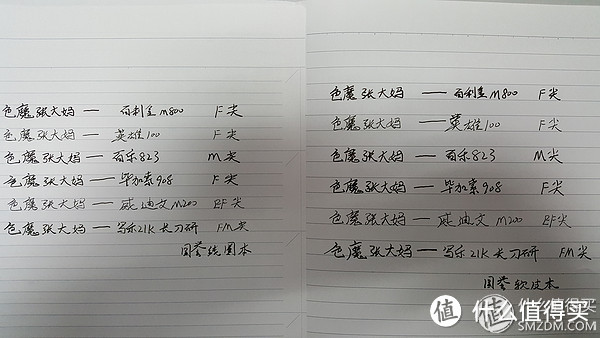 色魔张大妈 — 百利金M800 F尖
色魔张大妈 — 英雄100 F尖
色魔张大妈 — 百乐823 M尖
色魔张大妈 — 毕加索908 F尖
色魔张大妈 — 威迪文M200 EF尖
色魔张大妈 — 写乐21K长刀研 FM尖
国誉线圈本
色魔张大妈 — 百利金M800 F尖
色魔张大妈 — 英雄100 F尖
色魔张大妈 — 百乐823 M尖
色魔张大妈 — 毕加索908 F尖
色魔张大妈 — 威迪文M200 EF尖
色魔张大妈 — 写乐21K长刀研 FM尖
国誉软皮本
值 什么值得买
值 什么值得买
SMZDM.COM